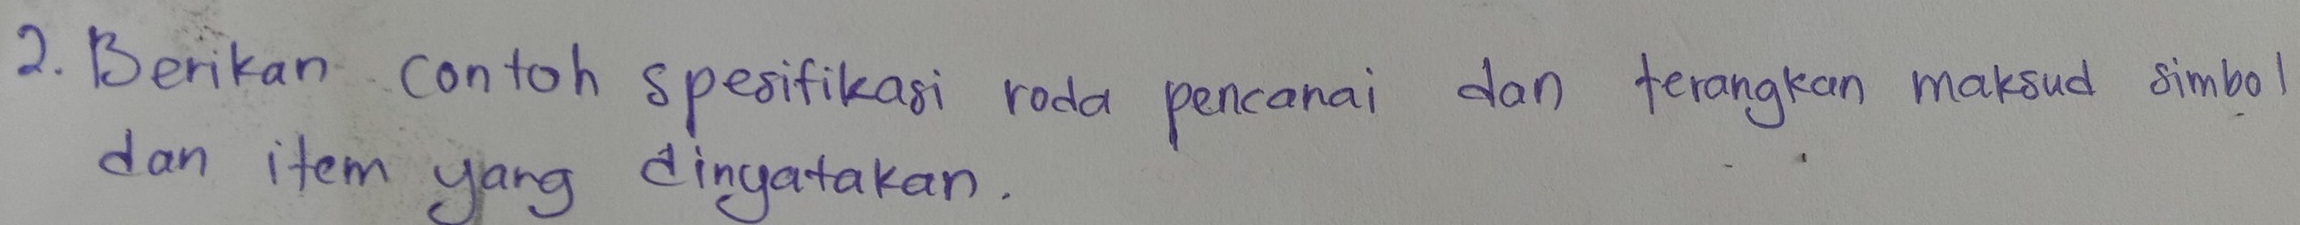 2. Berikan contoh spesifikasi roda pencanai dan terangkan maksud simbol
dan item yang dinyatakan.